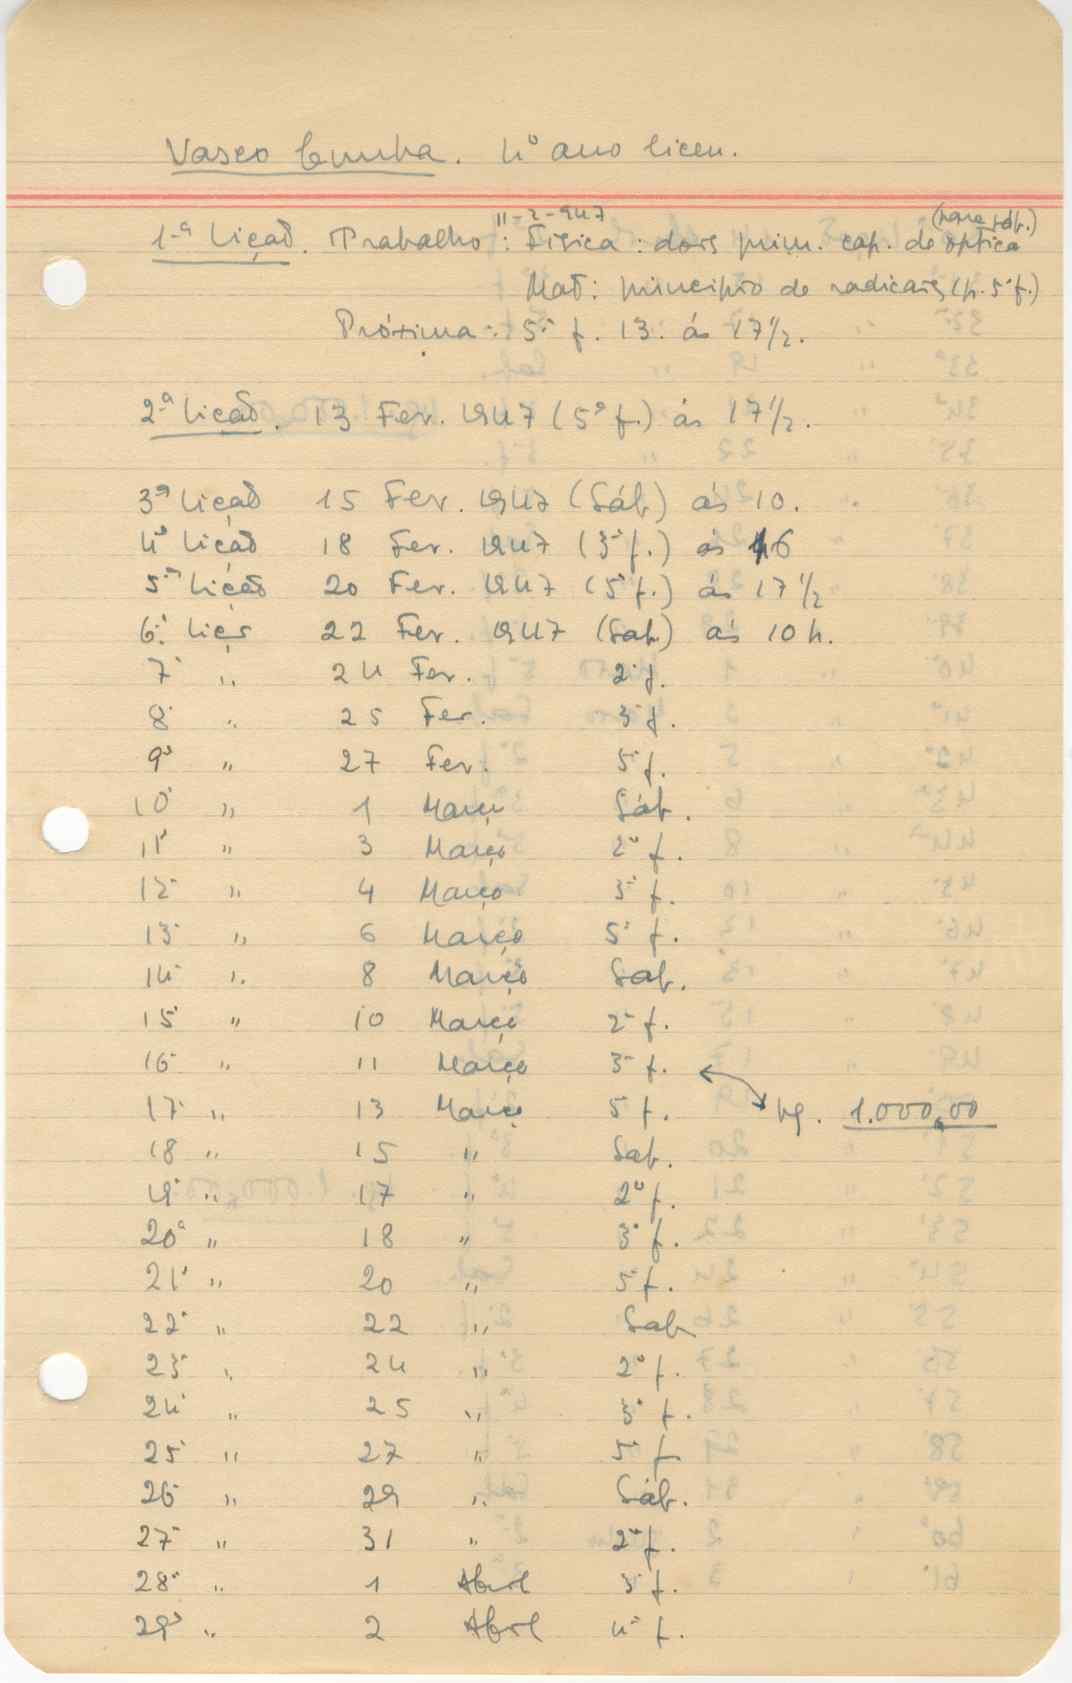 Vasco Cunha. 4º ano liceu.
11-2-947 (para sáb.)
1ª Lição. Trabalho: Física: dois prim. cap. de óptica
Mat: princípio de radicais (p. 5ª f.)
Próxima: 5ª f. 13. ás 17 1/2.
2ª Lição. 13 Fev. 1947 (5ª f.) ás 17 1/2.
3ª Lição 15 Fev. 1947 (Sáb) ás 10.
4ª Lição 18 Fev. 1947 (3ª f.) ás 16
5ª Lição 20 Fev. 1947 (5ª f.) ás 17 1/2
6ª Liçº 22 Fev. 1947 (Sab) ás 10 h.
7ª " 24 Fev. 2ª f.
8ª " 25 Fev. 3ª f.
9ª " 27 Fev. 5ª f.
10ª " 1 Março Sáb.
11ª " 3 Março 2ª f.
12ª " 4 Março 3ª f.
13ª " 6 Março 5ª f.
14ª " 8 Março Sab.
15ª " 10 Março 2ª f.
16ª " 11 Março 3ª f.
17ª " 13 Março 5ª f. pg. 1.000,00
18 " 15 " Sab.
19ª " 17 " 2ª f.
20ª " 18 " 3ª f.
21ª " 20 " 5ª f.
22ª " 22 " Sab
23ª " 24 " 2ª f.
24ª " 25 " 3ª f.
25ª " 27 " 5ª f
26ª " 29 " Sáb.
27ª " 31 " 2ª f.
28ª " 1 Abril 3ª f.
29ª " 2 Abril 4ª f.